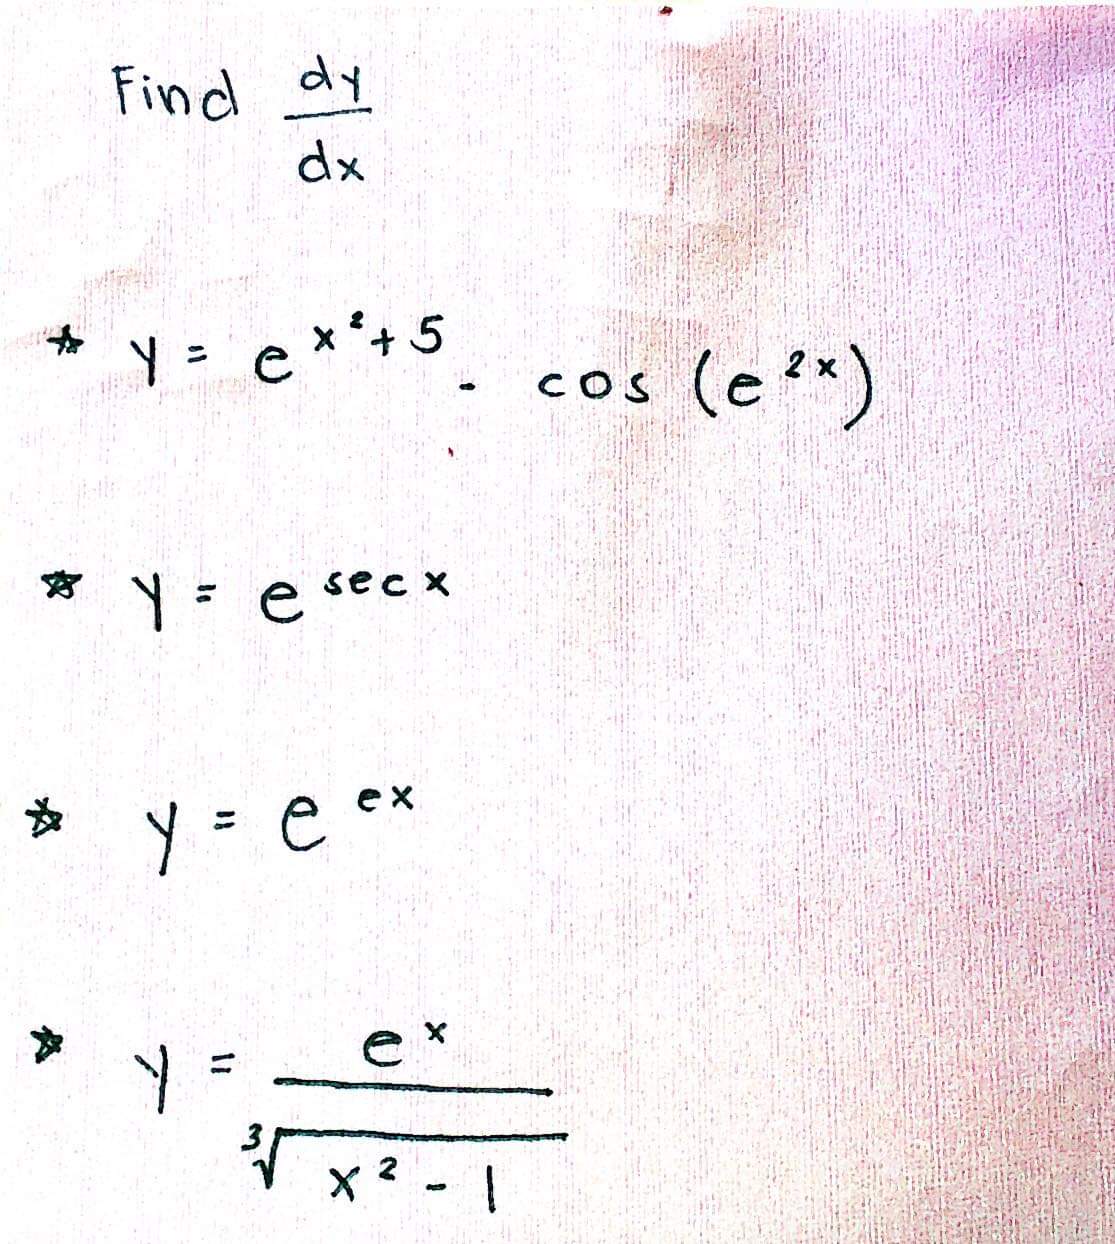 Find dy/dx
☆ y = e^{x²+5} - cos (e^{2x})
☆ y = e^{sec x}
☆ y = e^{ex}
☆ y = e^x / ∛(x² - 1)